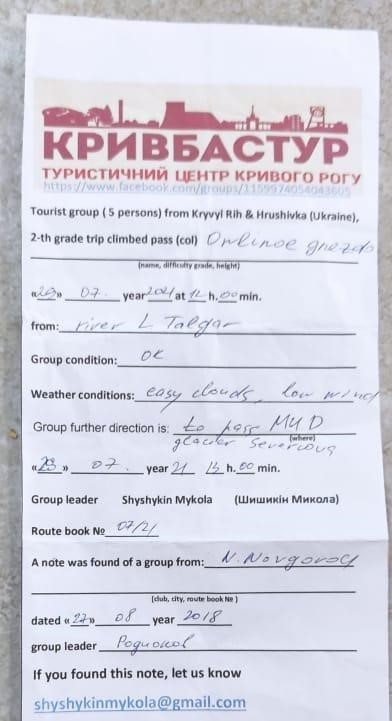 КРИВБАСТУР
ТУРИСТИЧНИЙ ЦЕНТР КРИВОГО РОГУ
https://www.facebook.com/groups/1159974054043605
Tourist group ( 5 persons) from Kryvyl Rih & Hrushivka (Ukraine),
2-th grade trip climbed pass (col) Orlinoe gnezdo
(name, difficulty grade, height)
«29» 07. year 2021 at 12 h. 00 min.
from: river L Talgar
Group condition: OK
Weather conditions: easy clouds, low wind
Group further direction is: to pass MYD
(where)
glacier Severcova
«29» 07 year 21 13 h. 00 min.
Group leader Shyshykin Mykola (Шишикін Микола)
Route book № 07/21
A note was found of a group from: N. Novgorod
(club, city, route book № )
dated «27» 08 year 2018
group leader Родионов
If you found this note, let us know
shyshykinmykola@gmail.com